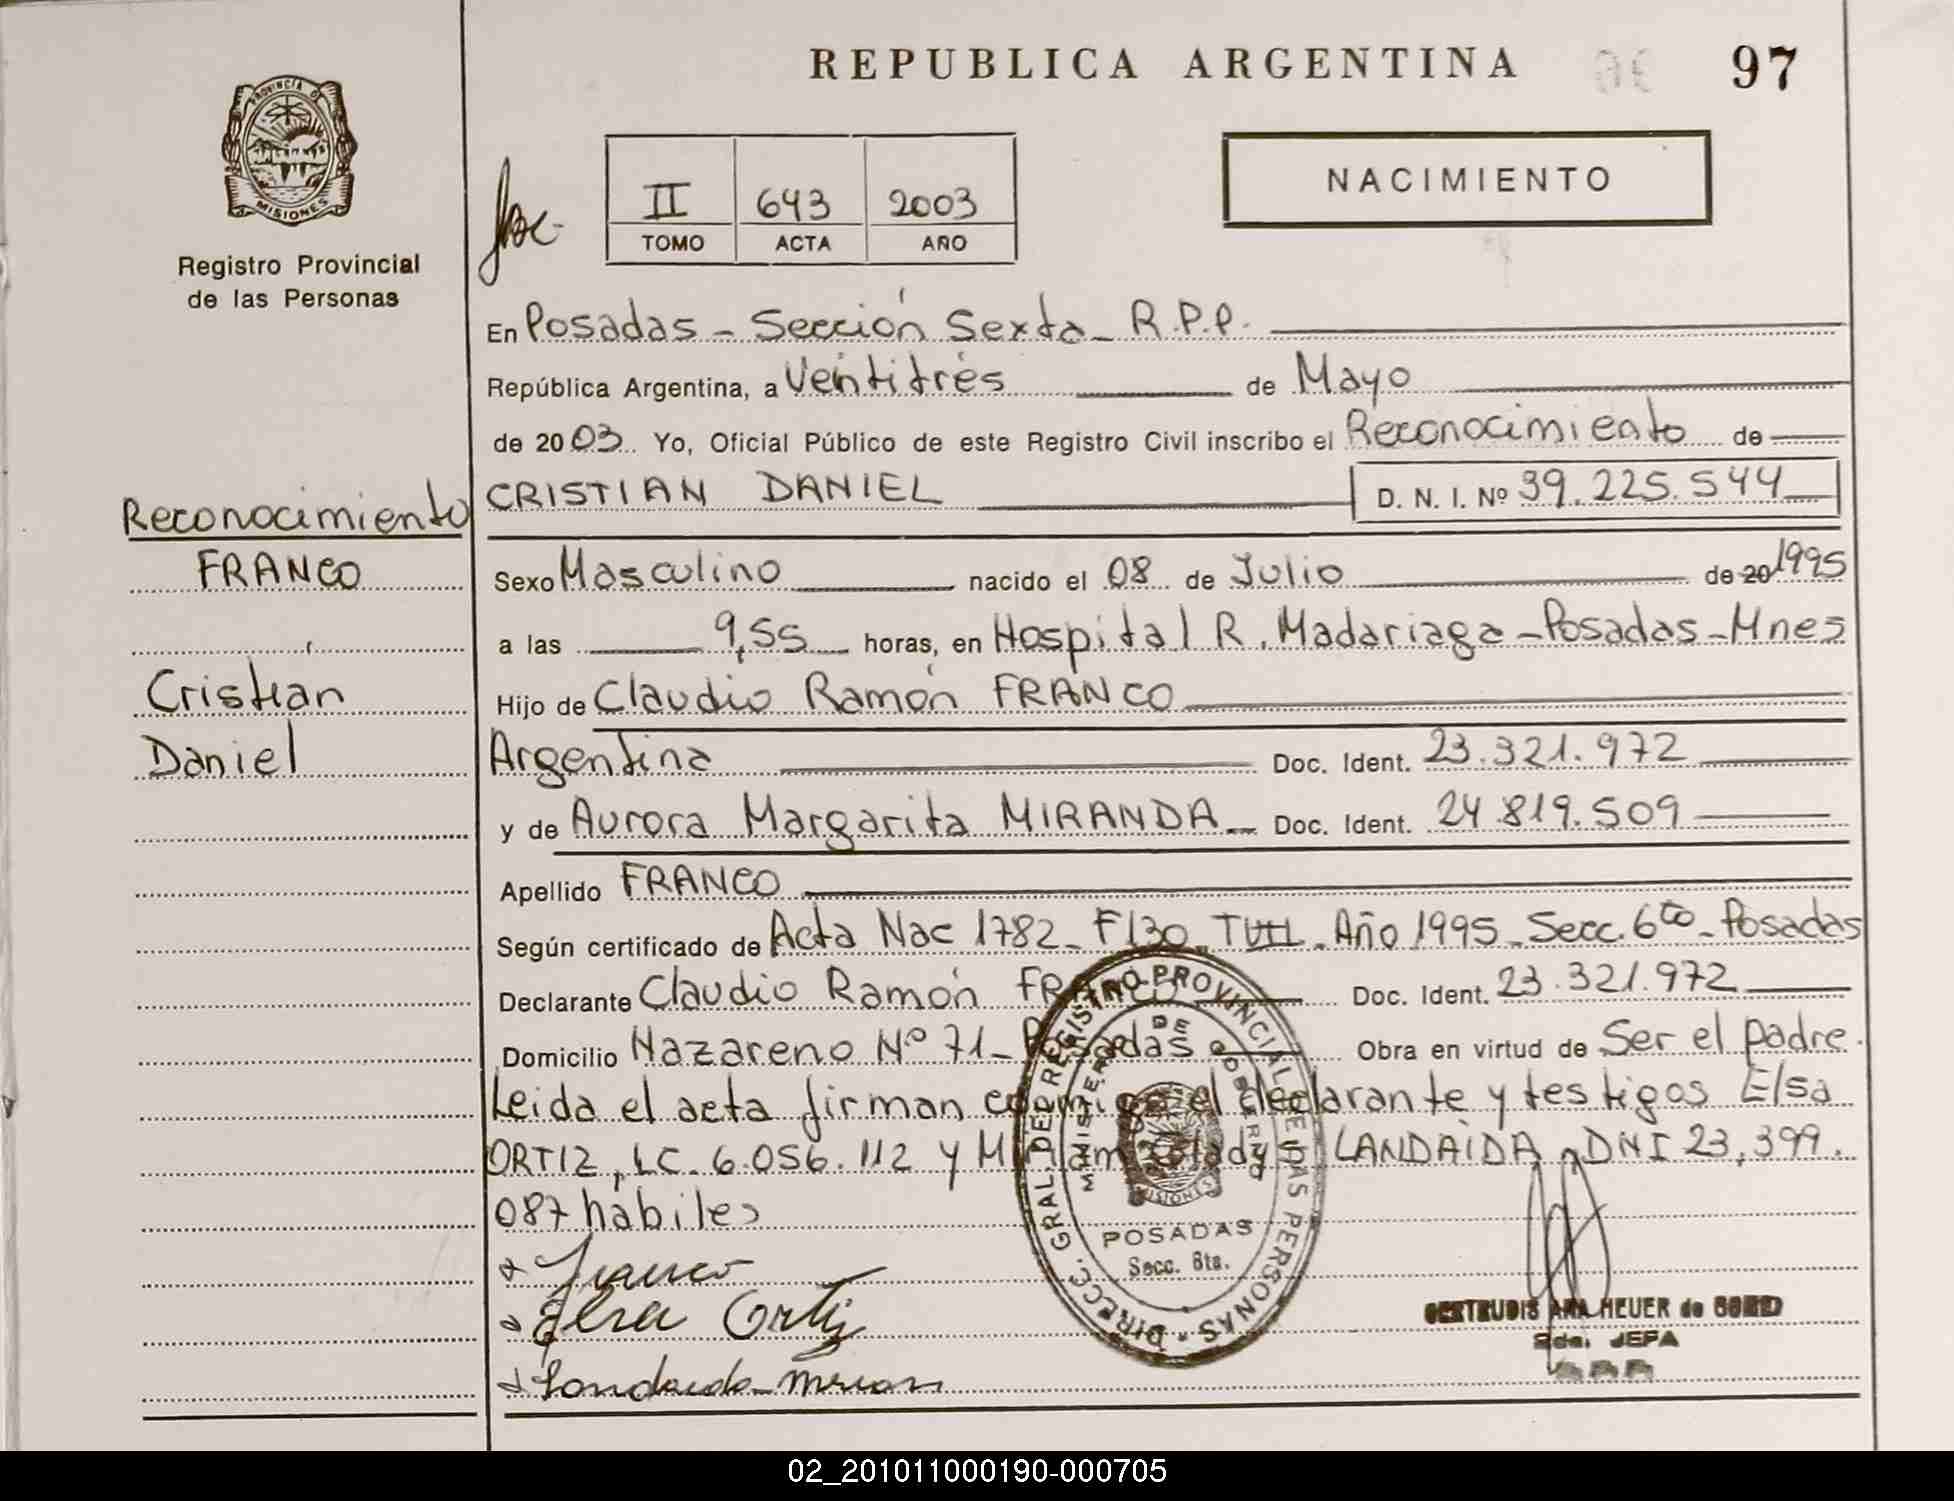 REPUBLICA ARGENTINA
97
PROVINCIA DE
MISIONES
Registro Provincial
de las Personas
II 643 2003
TOMO ACTA AÑO
NACIMIENTO
En Posadas - Sección Sexta - R.P.P.
República Argentina, a Veintitrés de Mayo
de 2003 Yo, Oficial Público de este Registro Civil inscribo el Reconocimiento de
CRISTIAN DANIEL D. N. I. Nº 39.225.544
Reconocimiento
FRANCO
Cristian
Daniel
Sexo Masculino nacido el 08 de Julio de 20 1995
a las 9,55 horas, en Hospital R. Madariaga - Posadas - Mnes
Hijo de Claudio Ramón FRANCO
Argentina Doc. Ident. 23.321.972
y de Aurora Margarita MIRANDA Doc. Ident. 24.819.509
Apellido FRANCO
Según certificado de Acta Nac 1782 - F130 Año 1995 - Secc. 6ta - Posadas
Declarante Claudio Ramón FRANCO Doc. Ident. 23.321.972
Domicilio Nazareno Nº 71 - Posadas Obra en virtud de Ser el padre.
Leida el acta firman conmigo el declarante y testigos Elsa
ORTIZ, LC. 6.056.112 y LANDAIDA, DNI 23.399.
087 habiles
DIRECC. GRAL. DEL REGISTRO PROVINCIAL DE LAS PERSONAS
MINISTERIO DE GOBIERNO
MISIONES
POSADAS
Secc. 6ta.
Franco
Elsa Ortiz
Landaida Miriam
GERTRUDIS ANA HEUER de
2da. JEFA
02_201011000190-000705